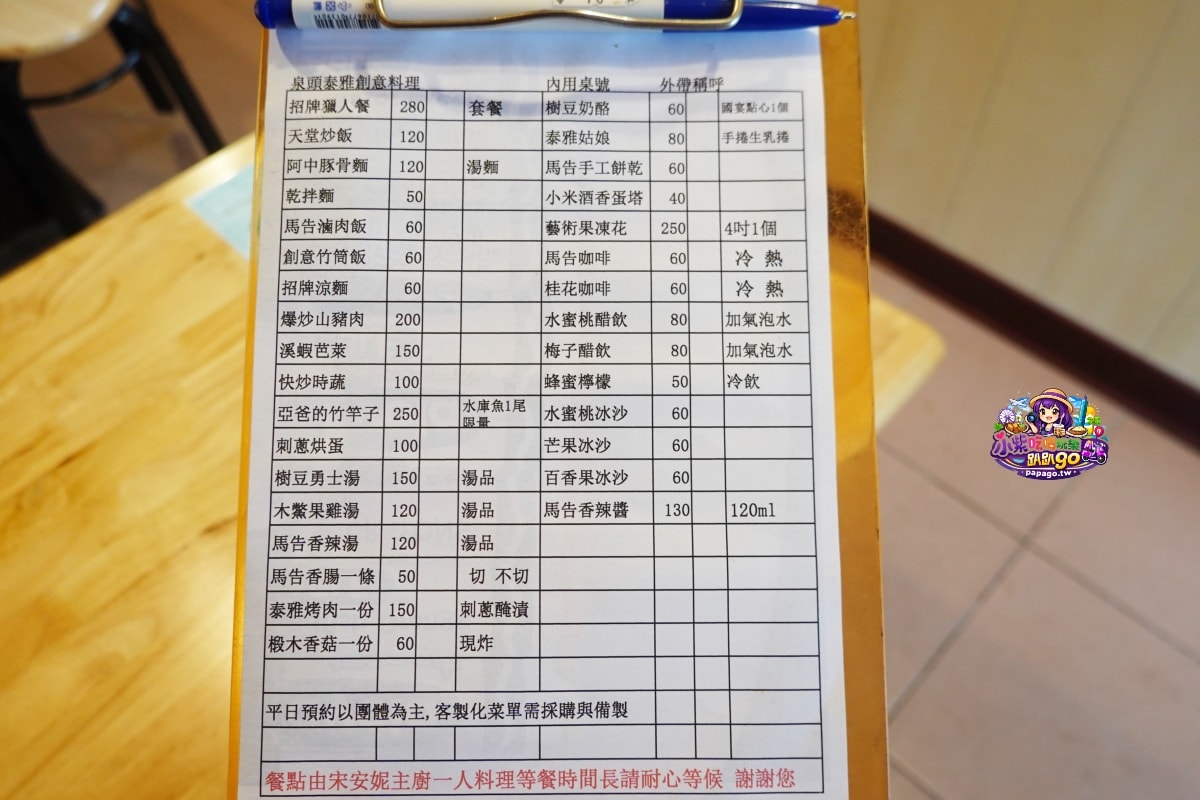 泉頭泰雅創意料理 內用桌號 外帶稱呼
招牌獵人餐 280 套餐 樹豆奶酪 60 國宴點心1個
天堂炒飯 120 泰雅姑娘 80 手捲生乳捲
阿中豚骨麵 120 湯麵 馬告手工餅乾 60
乾拌麵 50 小米酒香蛋塔 40
馬告滷肉飯 60 藝術果凍花 250 4吋1個
創意竹筒飯 60 馬告咖啡 60 冷 熱
招牌涼麵 60 桂花咖啡 60 冷 熱
爆炒山豬肉 200 水蜜桃醋飲 80 加氣泡水
溪蝦芭菜 150 梅子醋飲 80 加氣泡水
快炒時蔬 100 蜂蜜檸檬 50 冷飲
亞爸的竹竿子 250 水庫魚1尾 水蜜桃冰沙 60
限量
刺蔥烘蛋 100 芒果冰沙 60
樹豆勇士湯 150 湯品 百香果冰沙 60
木鱉果雞湯 120 湯品 馬告香辣醬 130 120ml
馬告香辣湯 120 湯品
馬告香腸一條 50 切 不切
泰雅烤肉一份 150 刺蔥醃漬
椴木香菇一份 60 現炸
平日預約以團體為主,客製化菜單需採購與備製
餐點由宋安妮主廚一人料理等餐時間長請耐心等候 謝謝您
小紫吃喝玩樂
趴趴go
papago.tw